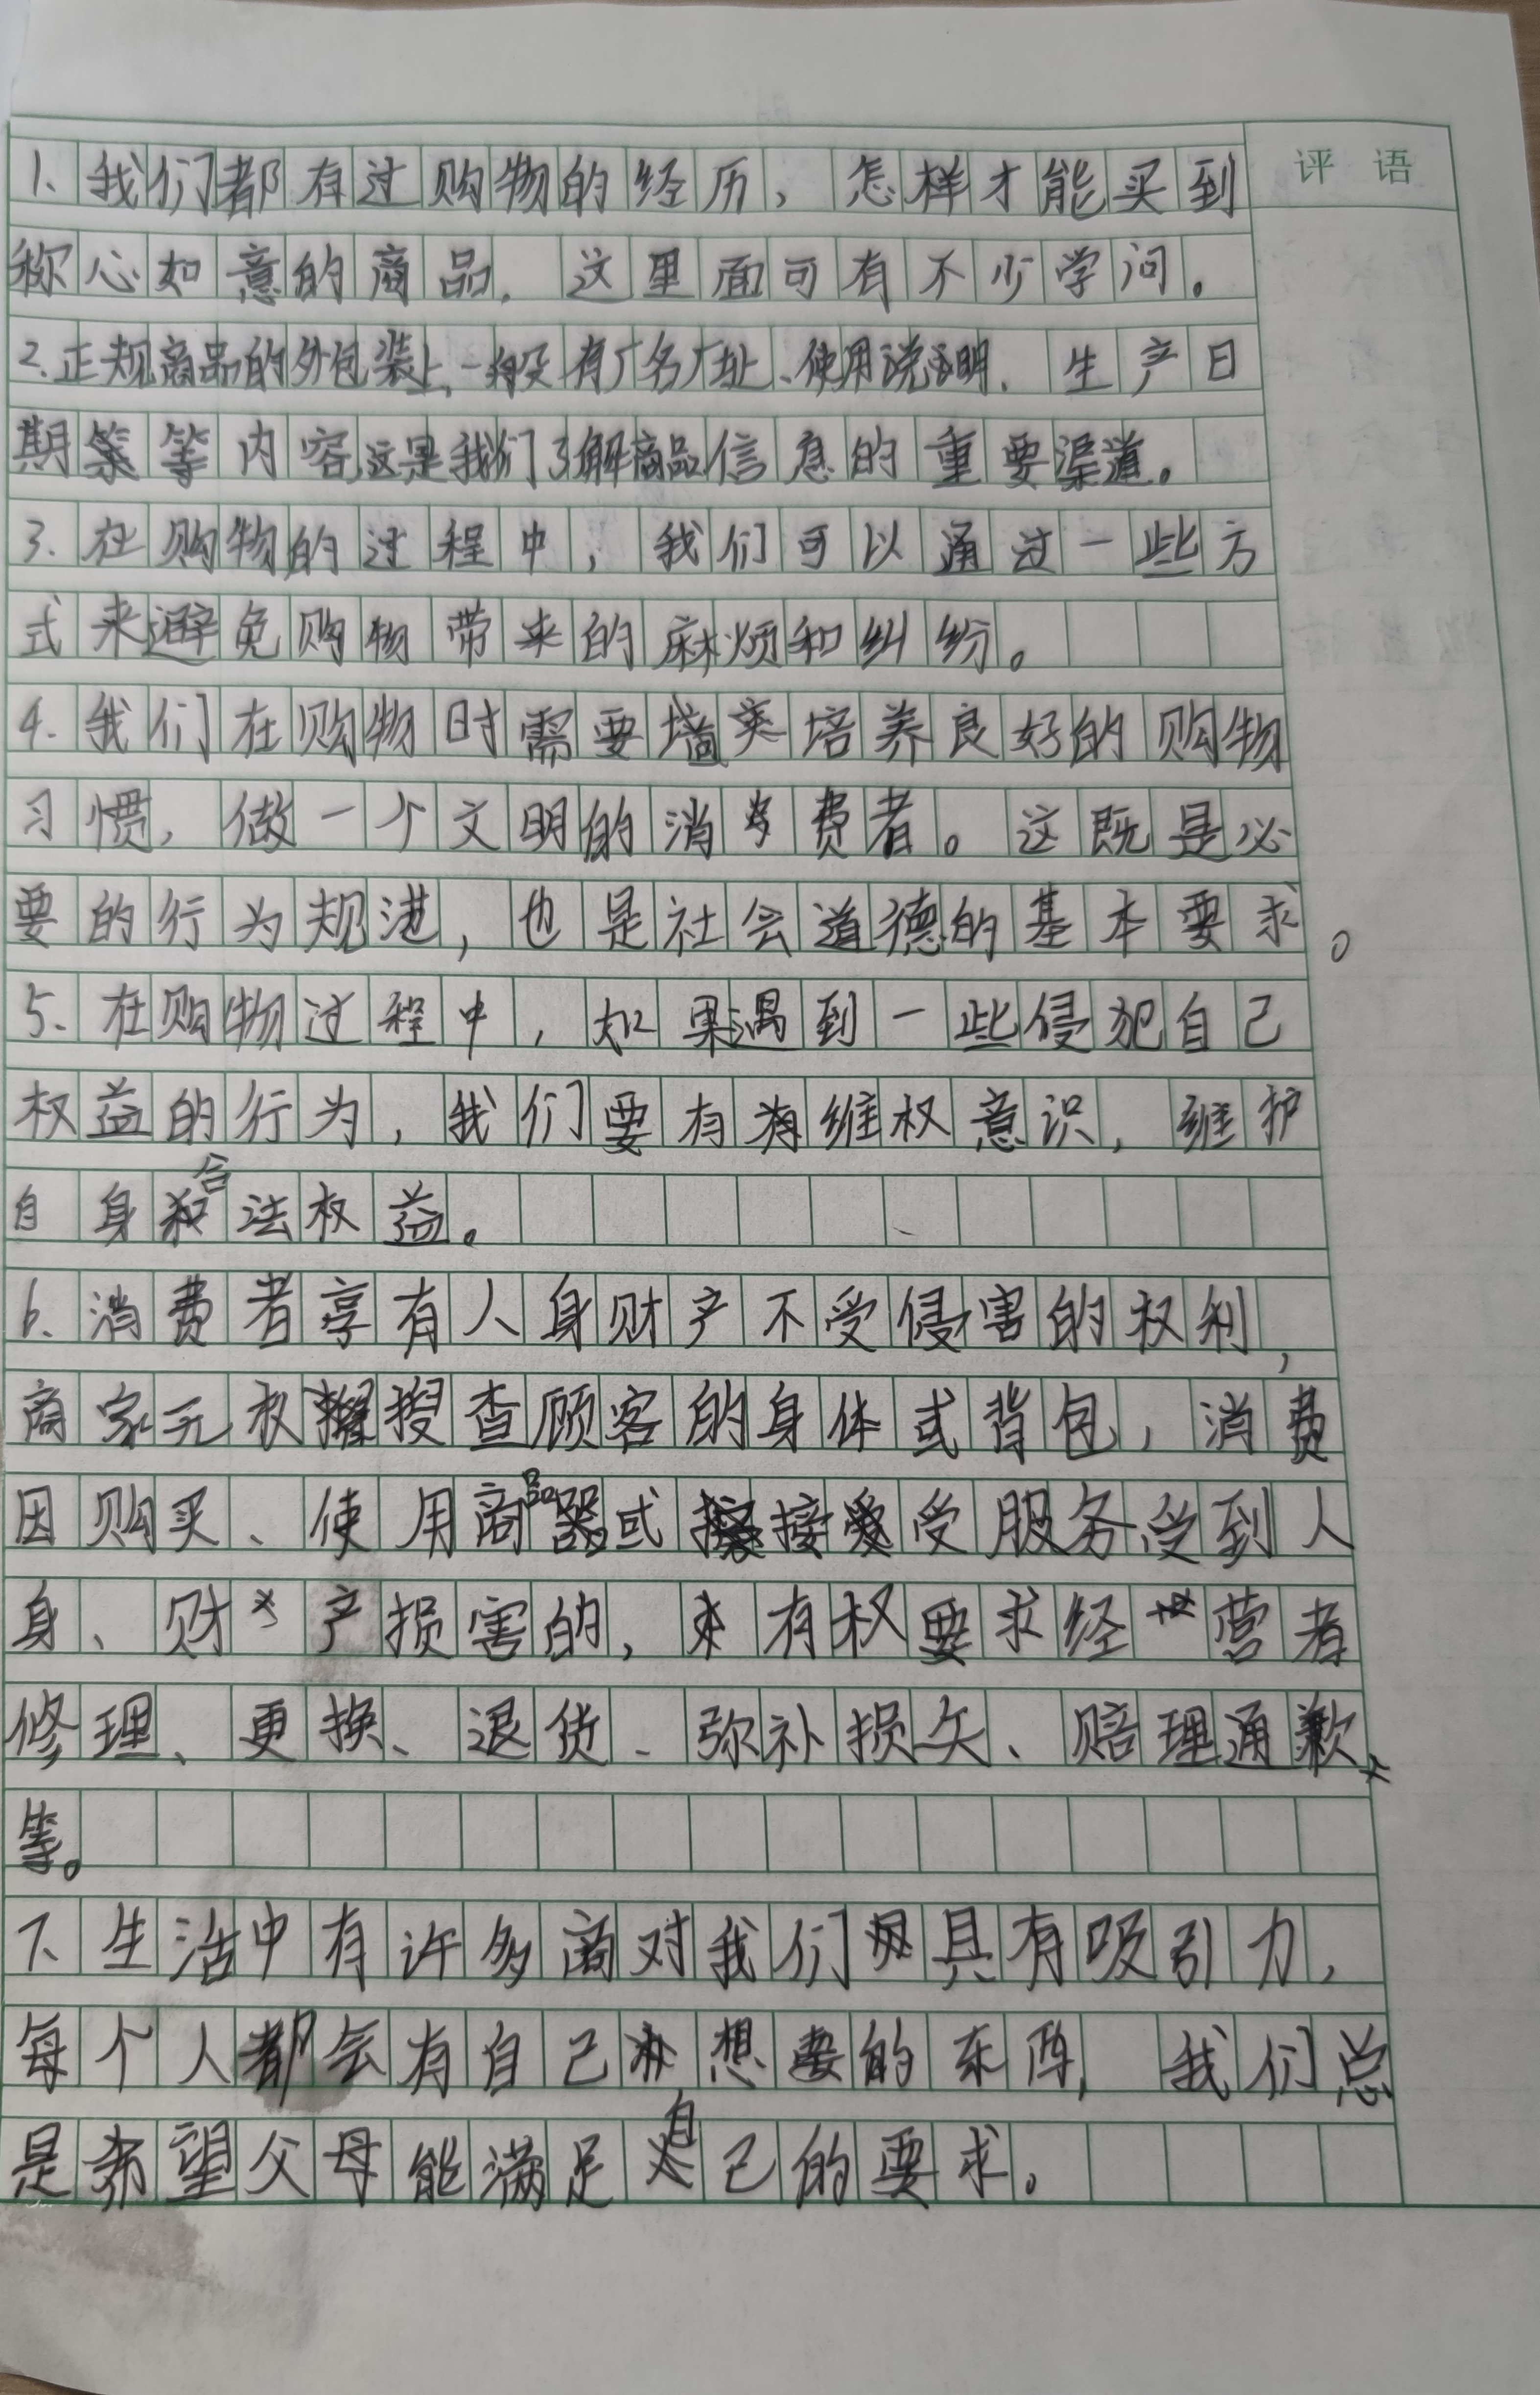 评 语
1、我们都有过购物的经历，怎样才能买到
称心如意的商品，这里面可有不少学问。
2、正规商品的外包装上，一般有厂名厂址、使用说明、生产日
期等内容，这是我们了解商品信息的重要渠道。
3、在购物的过程中，我们可以通过一些方
式来避免购物带来的麻烦和纠纷。
4、我们在购物时需要培养良好的购物
习惯，做一个文明的消费者。这既是必
要的行为规，也是社会道德的基本要求。
5、在购物过程中，如果遇到一些侵犯自己
权益的行为，我们要有维权意识，维护
自身合法权益。
6、消费者享有人身财产不受侵害的权利，
商家无权搜查顾客的身体或背包，消费
因购买、使用商品或接受服务受到人
身、财产损害的，有权要求经营者
修理、更换、退货、弥补损失、赔理通歉
等。
7、生活中有许多商对我们具有吸引力，
每个人都会有自己想要的东西，我们总
是希望父母能满足自己的要求。